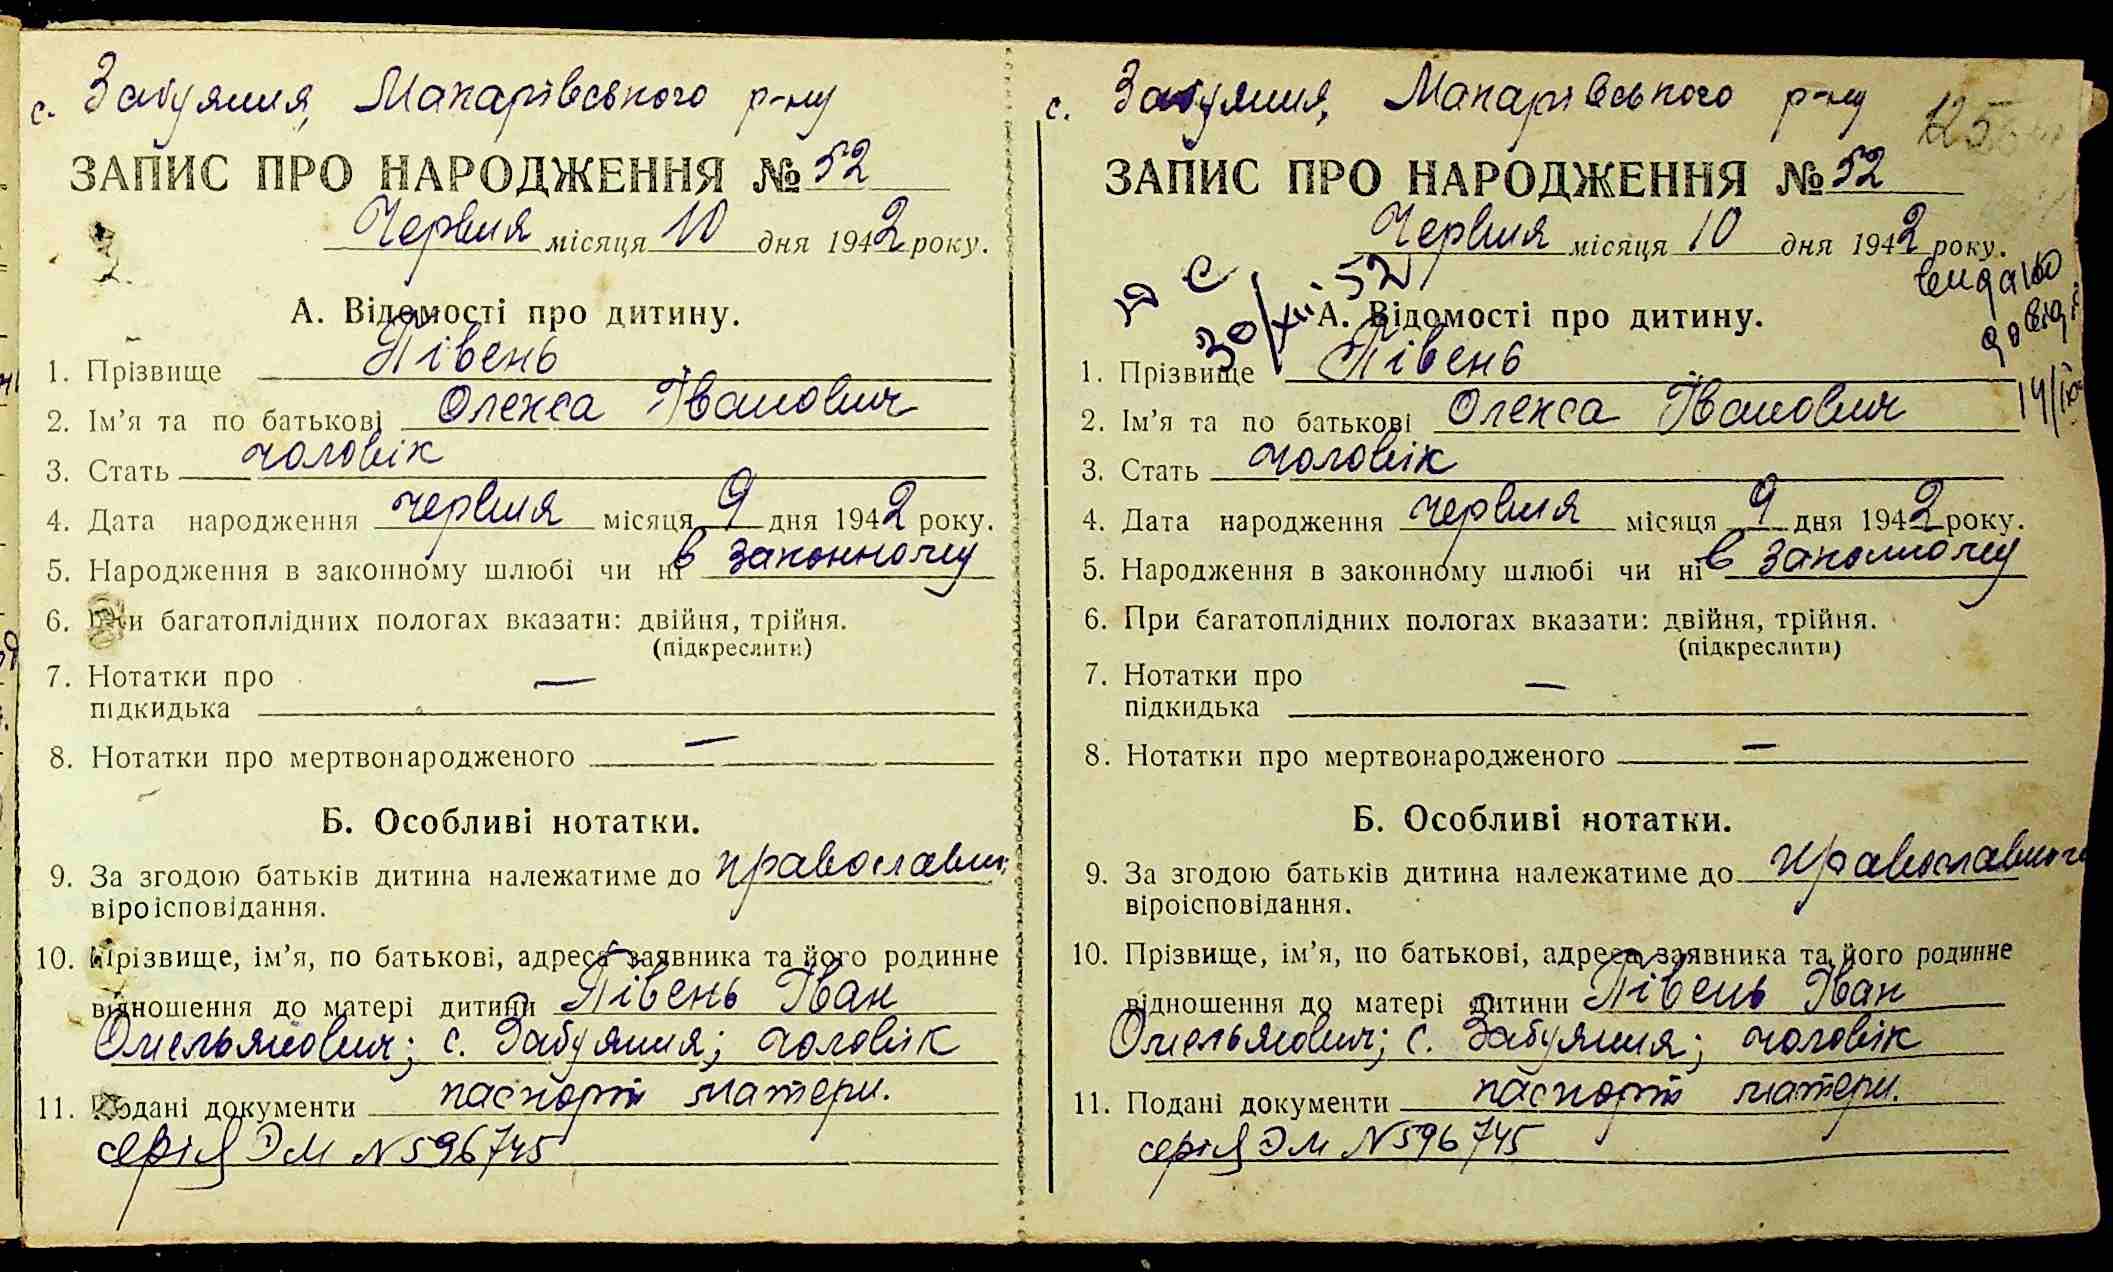 с. Забуяння, Макарівського р-ну
ЗАПИС ПРО НАРОДЖЕННЯ № 52
Червня місяця 10 дня 1942 року.
А. Відомості про дитину.
1. Прізвище Півень
2. Ім’я та по батькові Олекса Іванович
3. Стать чоловік
4. Дата народження червня місяця 9 дня 1942 року.
5. Народження в законному шлюбі чи ні в законному
6. При багатоплідних пологах вказати: двійня, трійня.
(підкреслити)
7. Нотатки про
підкидька —
8. Нотатки про мертвонародженого —
Б. Особливі нотатки.
9. За згодою батьків дитина належатиме до православн.
віроісповідання.
10. Прізвище, ім’я, по батькові, адреса заявника та його родинне
відношення до матері дитини Півень Іван
Омельянович; с. Забуяння; чоловік
11. Подані документи паспорт матери.
серія ЭМ N 596745
с. Забуяння, Макарівського р-ну
125
ЗАПИС ПРО НАРОДЖЕННЯ № 52
Червня місяця 10 дня 1942 року.
видано
довід.
30/XII 52
А. Відомості про дитину.
1. Прізвище Півень
2. Ім’я та по батькові Олекса Іванович
3. Стать чоловік
4. Дата народження червня місяця 9 дня 1942 року.
5. Народження в законному шлюбі чи ні в законному
6. При багатоплідних пологах вказати: двійня, трійня.
(підкреслити)
7. Нотатки про
підкидька —
8. Нотатки про мертвонародженого —
Б. Особливі нотатки.
9. За згодою батьків дитина належатиме до православного
віроісповідання.
10. Прізвище, ім’я, по батькові, адреса заявника та його родинне
відношення до матері дитини Півень Іван
Омельянович; с. Забуяння; чоловік
11. Подані документи паспорт матери.
серія ЭМ N 596745